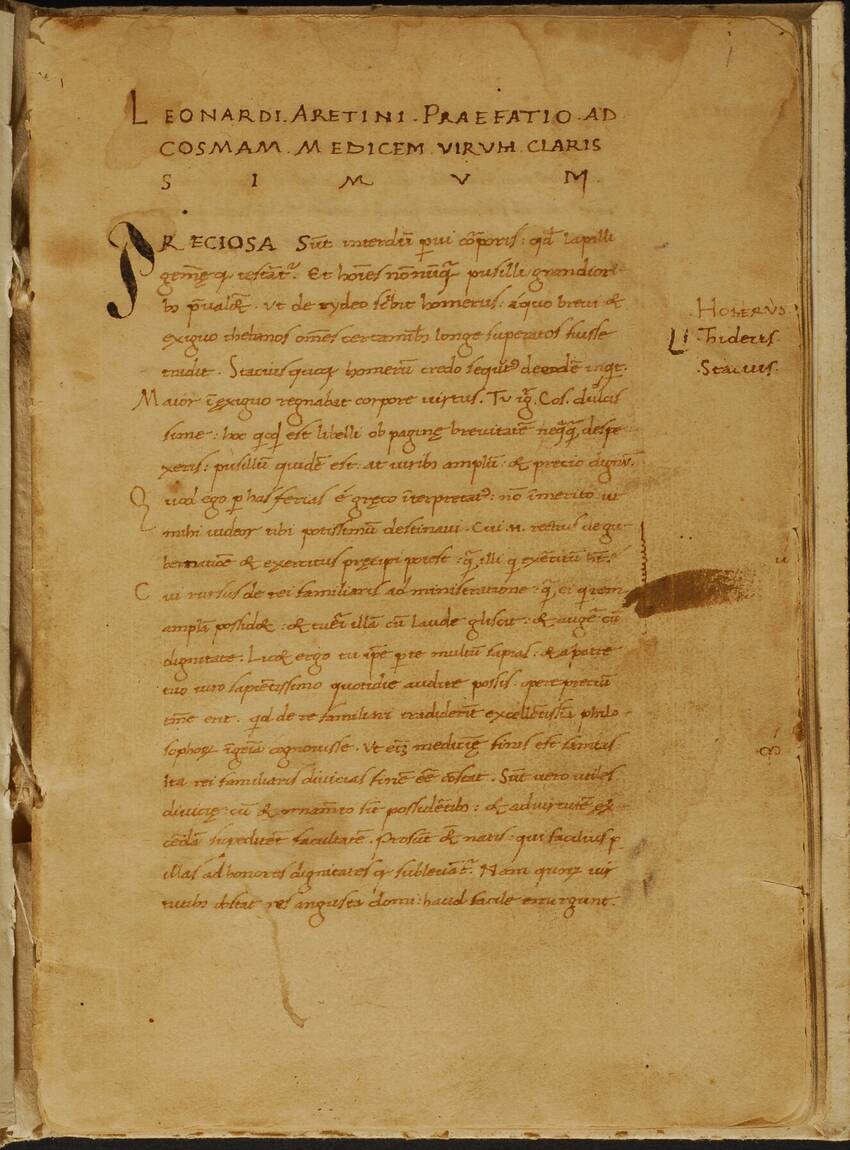 LEONARDI. ARETINI. PRAEFATIO. AD
COSMAM. MEDICEM VIRVM. CLARIS
S I M V M.
PRECIOSA Sūt interdū p̱ui cōꝑoris: qd̄ lapilli
gemęq testāt͛. Et hoīes nōnūq̄ pusilli grandiori-
bꝫ p̄ualēt. Vt de tydeo sc̄bit homerus: a quo breui &
exiguo thebanos om̄es certaminibꝫ longe superatos fuisse
tradit. Stacius quoqꝫ homerū credo sequut⁹ de eodē inqt.
Maior ī exiguo regnabat corpore uirtus. Tu ig̃. Cos. dulcis
sime: hoc qcqd est libelli ob paginę breuitatē neq̄q̄ despe
xeris: pusillū quidē est. at uiribꝫ amplū: & precio dignū.
Quod ego ꝑ has ferias é gręco īterpretat⁹: nō īmerito ut
mihi uideor tibi potissimū destinaui. Cui .n. rectius de gu-
bernatiōe & exercitus pręcipi potest: q̄, illi q exercitū h̄t?
Cui rursus de rei familiaris administratione: q̄, ei q rem
amplā possidet: & tueri illā cū laude gliscit: & augē cū
dignitate. Licet ergo tu ip̄e ꝑ te multū sapias: & a patre
tuo uiro sapiētissimo quotidie audire possis. opere preciū
tm̄e erit. qd de re familiari tradiderit excellētissīa philo-
sophoꝝ īgeīa cognouisse. Vt eī medicinę finis est sanitas
Ita rei familiaris diuicias finē eē cōstat. Sūt uero utiles
diuicię: cū & ornam̄to sīt possidētibꝫ: & ad uirtutē ex-
cēdā suppeditēt facultatē. Prosūt & natis. qui facilius ꝑ
illas ad honores dignitatesq subleuāt͛. Nam quoꝝ uir
tutibꝫ obstat res angusta domi: haud facile emergunt.
HOMERVS.
Tideus.
.Stacius.